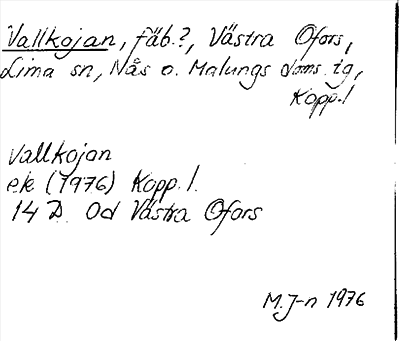 Vallkojan, fäb.?, Västra Ofors,
Lima sn, Nås o. Malungs doms. tg,
Kopp. l
Vallkojan
ek (1976) Kopp. l.
14 D. Od Västra Ofors
M. J-n 1976